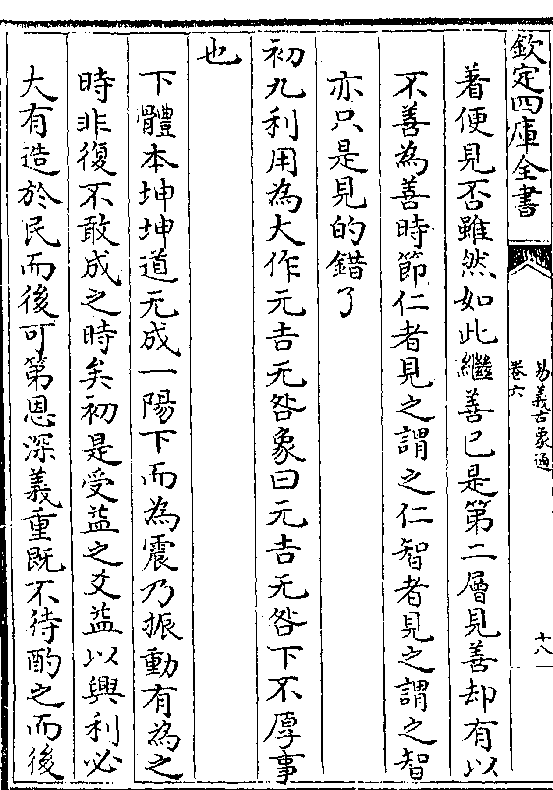 欽定四庫全書
易義古象通
卷六
十八
着便見否雖然如此繼善已是第二層見善却有以
不善為善時節仁者見之謂之仁智者見之謂之智
亦只是見的錯了
初九利用為大作元吉无咎象曰元吉无咎下不厚事
也
下體本坤坤道无成一陽下而為震乃振動有為之
時非復不敢成之時矣初是受益之爻益以興利必
大有造於民而後可第恩深義重既不待酌之而後